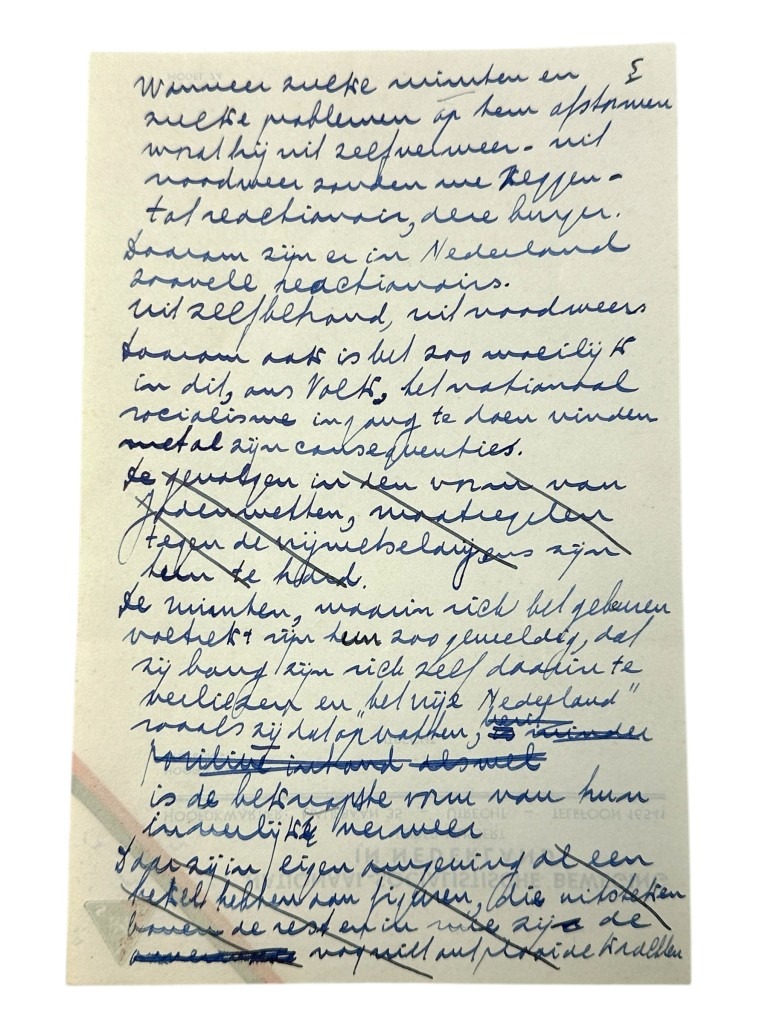 5
Wanneer zulke minuten en
zulke problemen op hem afstormen
wordt hij uit zelfverweer - uit
noodweer zouden we zeggen -
tot reactionair, deze burger.
Daarom zijn er in Nederland
zoovele reactionairs.
uit zelfbehoud, uit noodweer
Daarom ook is het zoo moeilijk
in dit, ons Volk, het nationaal
socialisme ingang te doen vinden
met al zijn consequenties.
De gevolgen in den vorm van
Jodenwetten, maatregelen
tegen de vrijmetselarij ens zijn
hun te hard.
De minuten, waarin zich het gebeuren
voltrekt zijn hun zoo geweldig, dat
zij bang zijn zich zelf daarin te
verliezen en "het vrije Nederland"
zooals zij dat opvatten, minder
positief inhoud alswel
is de beknopste vorm van hun
innerlijke verweer
Daar zij in eigen omgeving al een
hekel hebben aan figuren, die uitsteken
boven de rest en in wie zij de
nog niet ontplooide krachten
HOOFDKWARTIER: MALIEBAAN 35 - UTRECHT - TELEFOON 16541
IN NEDERLAND
NATIONAAL-SOCIALISTISCHE BEWEGING